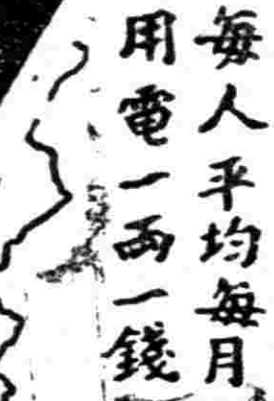 每人平均每月
用電一兩一錢